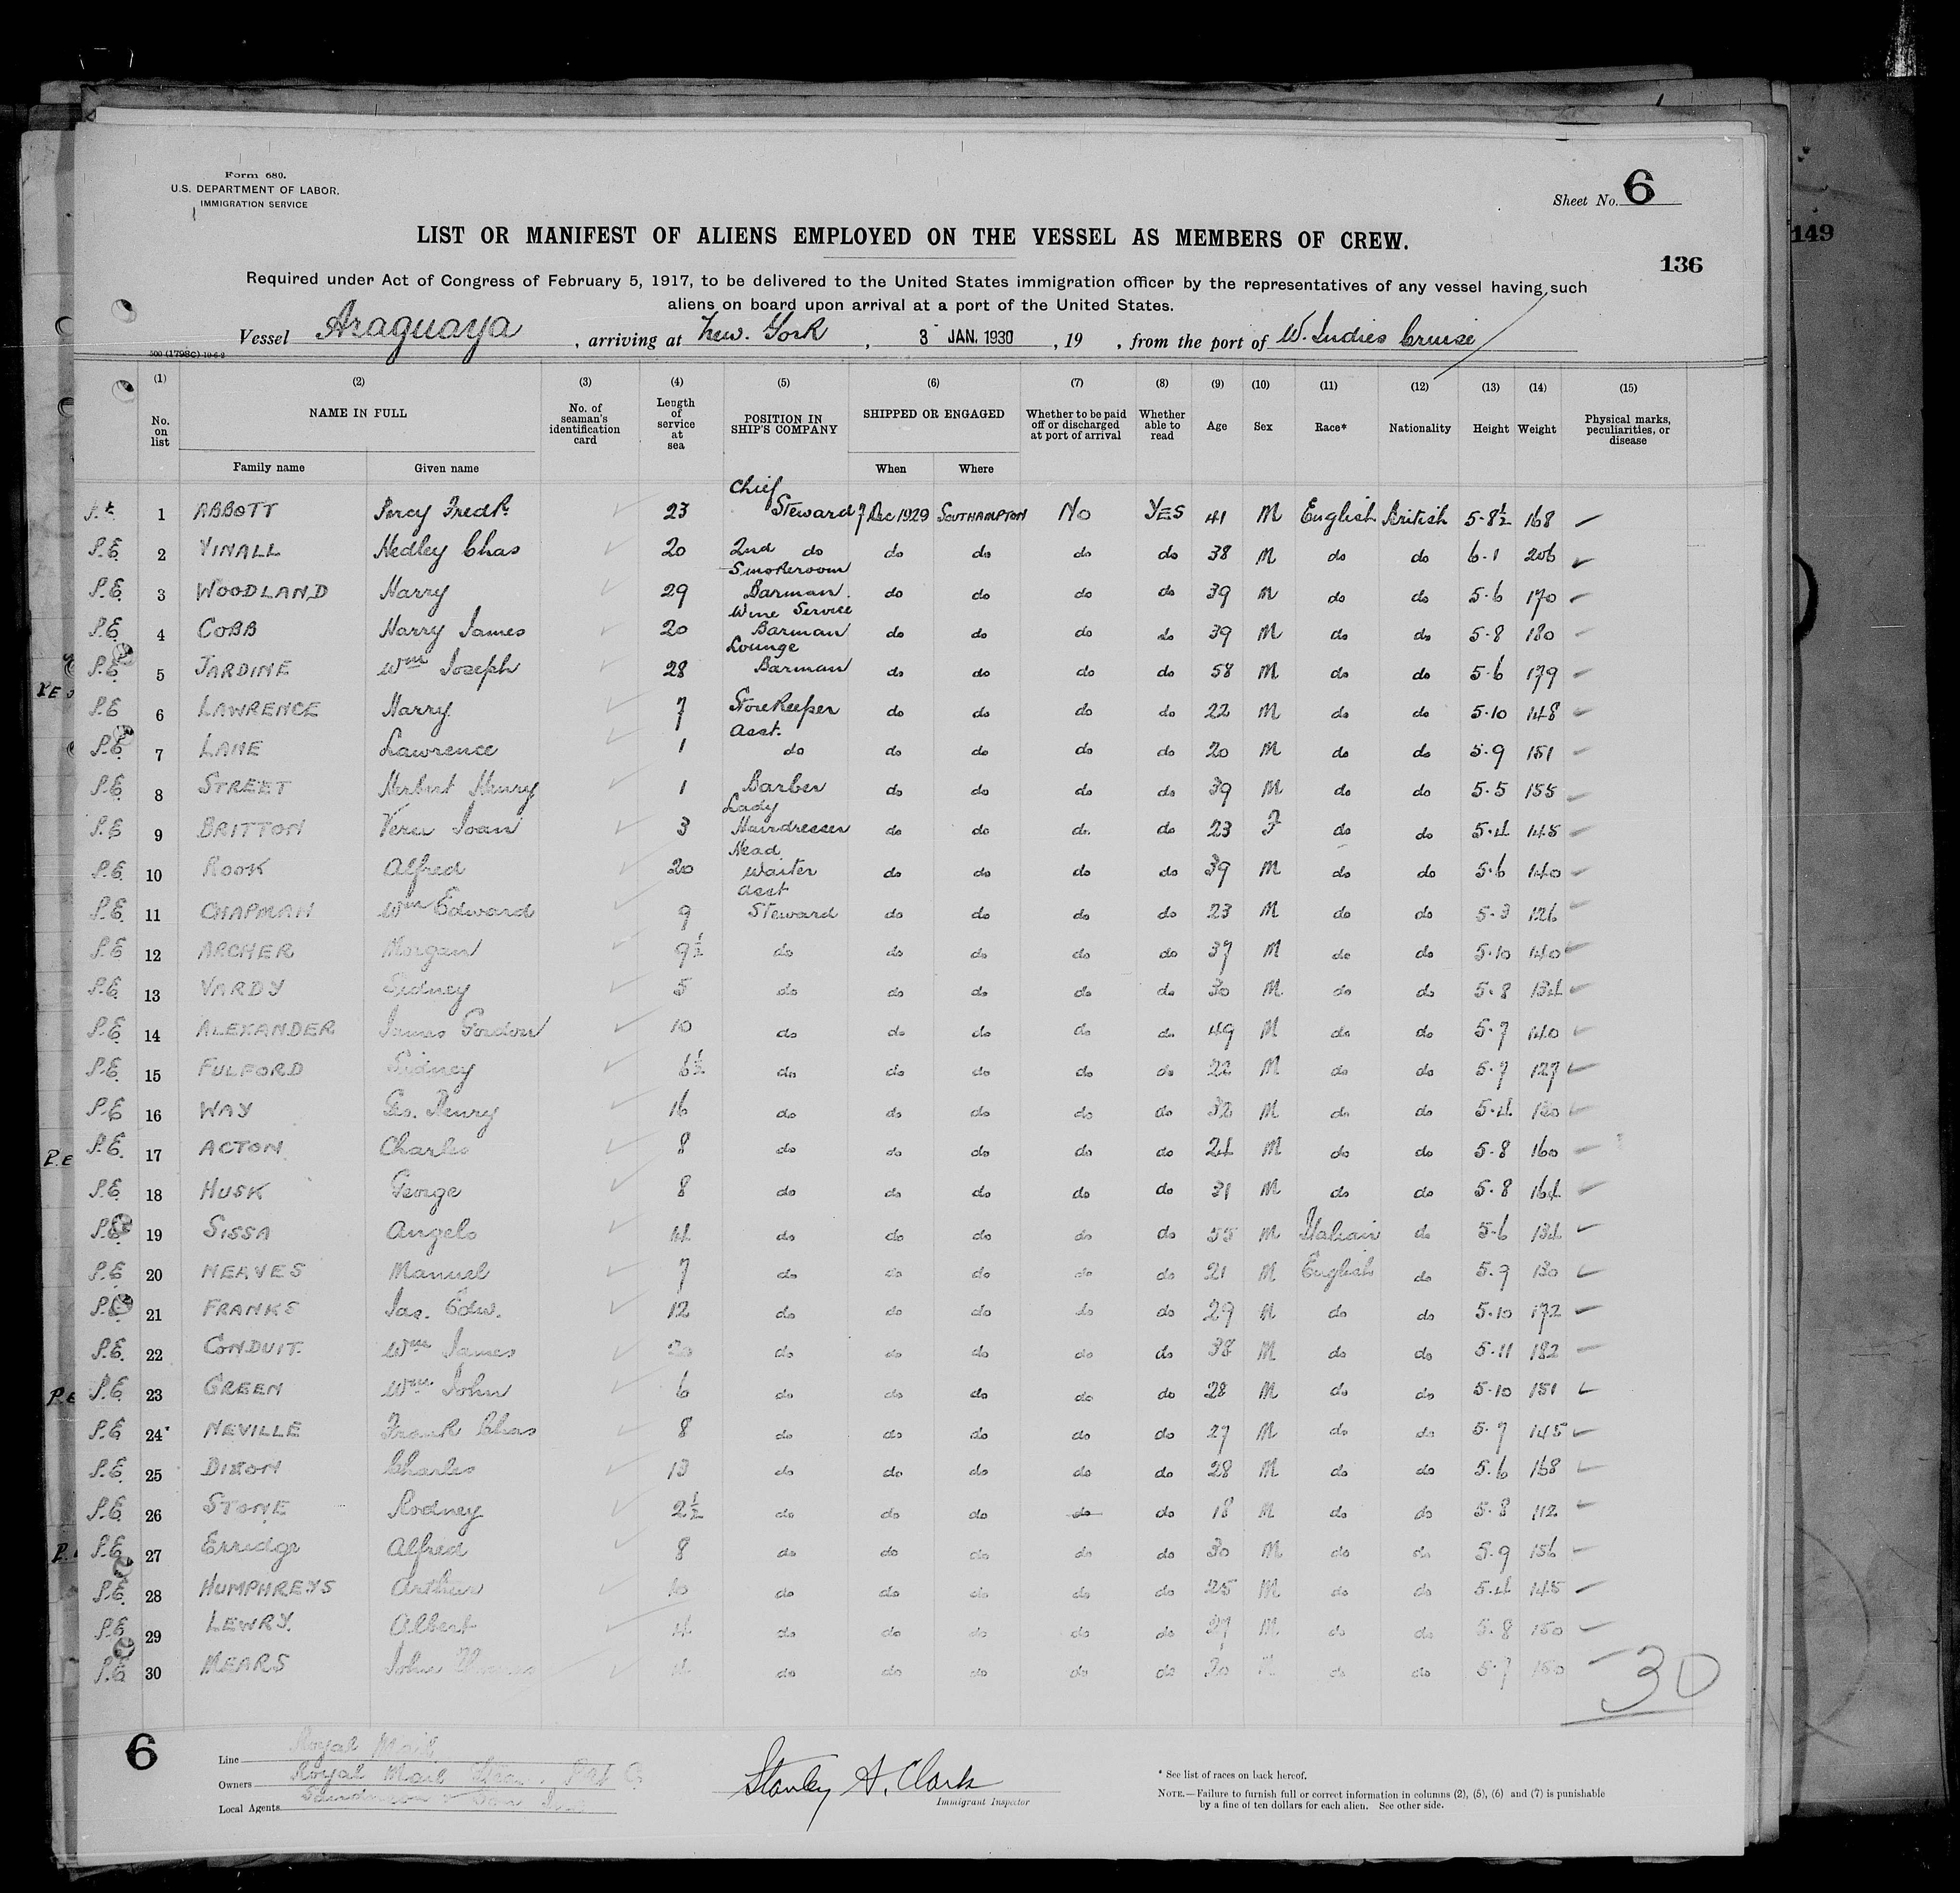 Form 680.
U.S. DEPARTMENT OF LABOR,
IMMIGRATION SERVICE
Sheet No. 6
149
LIST OR MANIFEST OF ALIENS EMPLOYED ON THE VESSEL AS MEMBERS OF CREW.
136
Required under Act of Congress of February 5, 1917, to be delivered to the United States immigration officer by the representatives of any vessel having such
aliens on board upon arrival at a port of the United States.
Vessel Araguaya, arriving at New. York, 3 JAN. 1930, 19 , from the port of W. Indies Cruise
500 (1798C) 10-6-2
(1) (2) (3) (4) (5) (6) (7) (8) (9) (10) (11) (12) (13) (14) (15)
No. on list NAME IN FULL Family name Given name No. of seaman's identification card Length of service at sea POSITION IN SHIP'S COMPANY SHIPPED OR ENGAGED When Where Whether to be paid off or discharged at port of arrival Whether able to read Age Sex Race* Nationality Height Weight Physical marks, peculiarities, or disease
1 ABBOTT Percy Fredk. 23 Chief Steward 7 Dec 1929 SOUTHAMPTON No YES 41 M English British 5-8½ 168
P.E. 2 VINALL Hedley Chas 20 2nd do do do do do 38 M do do 6-1 206
P.E. 3 WOODLAND Harry 29 Smokeroom Barman. do do do do 39 M do do 5-6 170
P.E. 4 COBB Harry James 20 Wine Service Barman do do do do 39 M do do 5-8 180
P.E. 5 JARDINE Wm Joseph 28 Lounge Barman do do do do 58 M do do 5-6 179
P.E. 6 LAWRENCE Harry. 7 Storekeeper do do do do 22 M do do 5-10 148
P.E. 7 LANE Lawrence 1 Asst. do do do do do 20 M do do 5-9 151
P.E. 8 STREET Herbert Henry 1 Barber do do do do 39 M do do 5-5 155
P.E. 9 BRITTON Vera Joan 3 Lady Hairdresser do do do. do 23 F do do 5-4 145
P.E. 10 ROOK Alfred 20 Head Waiter do do do do 39 M do do 5-6 140
P.E. 11 CHAPMAN Wm Edward 9 asst Steward do do do do 23 M do do 5-3 126
P.E. 12 ARCHER Morgan 9½ do do do do do 37 M do do 5-10 140
P.E. 13 VARDY Sidney 5 do do do do do 30 M do do 5-8 134
P.E. 14 ALEXANDER James Gordon 10 do do do do do 49 M do do 5-7 140
P.E. 15 FULFORD Sidney 6½ do do do do do 22 M do do 5-7 127
P.E. 16 WAY Geo. Henry 16 do do do do do 32 M do do 5-4 130
P.E. 17 ACTON Charles 8 do do do do do 24 M do do 5-8 160
P.E. 18 HUSK George 8 do do do do do 31 M do do 5-8 164
P.E. 19 SISSA Angelo 4 do do do do do 55 M Italian do 5-6 134
P.E. 20 NEAVES Manuel 7 do do do do do 21 M English do 5-9 130
P.E. 21 FRANKS Jas. Edw. 12 do do do do do 29 M do do 5-10 172
P.E. 22 CONDUIT. Wm James 20 do do do do do 38 M do do 5-11 182
P.E. 23 GREEN Wm John 6 do do do do do 28 M do do 5-10 151
P.E. 24 NEVILLE Frank Chas 8 do do do do do 27 M do do 5-7 145
P.E. 25 DIXON Charles 13 do do do do do 28 M do do 5-6 168
P.E. 26 STONE Rodney 2½ do do do do do 18 M do do 5-8 112
P.E. 27 Erridge Alfred 8 do do do do do 30 M do do 5-9 156
P.E. 28 HUMPHREYS Arthur 10 do do do do do 25 M do do 5-4 145
P.E. 29 LEWRY. Albert 4 do do do do do 27 M do do 5-8 150
P.E. 30 MEARS John 4 do do do do do 20 M do do 5-7 150
30
6
Line Royal Mail
Owners Royal Mail
Local Agents
Stanley A. Clark
Immigrant Inspector
* See list of races on back hereof.
NOTE.—Failure to furnish full or correct information in columns (2), (5), (6) and (7) is punishable
by a fine of ten dollars for each alien. See other side.